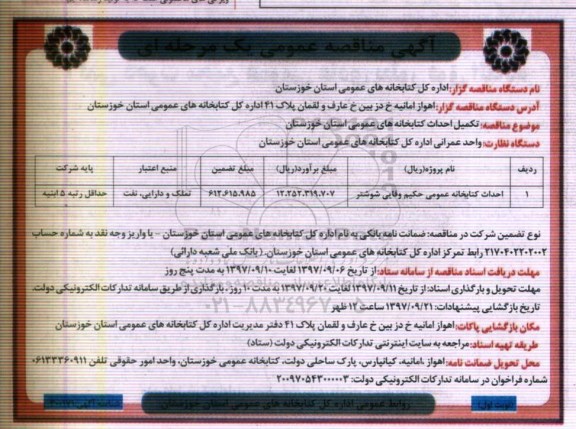 آگهی مناقصه عمومی یک مرحله ای
نام دستگاه مناقصه گزار: اداره کل کتابخانه های عمومی استان خوزستان
آدرس دستگاه مناقصه گزار: اهواز امانیه خ دز بین خ عارف و لقمان پلاک ۴۱ اداره کل کتابخانه های عمومی استان خوزستان
موضوع مناقصه: تکمیل احداث کتابخانه های عمومی استان خوزستان
دستگاه نظارت: واحد عمرانی اداره کل کتابخانه های عمومی استان خوزستان
ردیف نام پروژه(ریال) مبلغ برآورد(ریال) مبلغ تضمین منبع اعتبار پایه شرکت
۱ احداث کتابخانه عمومی حکیم وفایی شوشتر ۱۲.۲۵۲.۳۱۹.۷۰۷ ۶۱۲.۶۱۵.۹۸۵ تملک و دارایی، نفت حداقل رتبه ۵ ابنیه
نوع تضمین شرکت در مناقصه: ضمانت نامه بانکی به نام اداره کل کتابخانه های عمومی استان خوزستان - یا واریز وجه نقد به شماره حساب
۲۱۷۰۴۰۲۲۰۲۰۰۲ رابط تمرکز اداره کل کتابخانه های عمومی استان خوزستان. (بانک ملی شعبه دارائی)
مهلت دریافت اسناد مناقصه از سامانه ستاد: از تاریخ ۱۳۹۷/۰۹/۰۶ لغایت ۱۳۹۷/۰۹/۱۰ به مدت پنج روز
مهلت تحویل و بارگذاری اسناد: از تاریخ ۱۳۹۷/۰۹/۱۱ لغایت ۱۳۹۷/۰۹/۲۰ به مدت ۱۰ روز، بارگذاری از طریق سامانه تدارکات الکترونیکی دولت.
تاریخ بازگشایی پیشنهادات: ۱۳۹۷/۰۹/۲۱ ساعت ۱۲ ظهر
مکان بازگشایی پاکات: اهواز امانیه خ دز بین خ عارف و لقمان پلاک ۴۱ دفتر مدیریت اداره کل کتابخانه های عمومی استان خوزستان
طریقه تهیه اسناد: مراجعه به سایت اینترنتی تدارکات الکترونیکی دولت (ستاد)
محل تحویل ضمانت نامه: اهواز ،امانیه، کیانپارس، پارک ساحلی دولت، کتابخانه عمومی خوزستان، واحد امور حقوقی تلفن ۰۶۱۳۳۳۶۰۹۱۱
شماره فراخوان در سامانه تدارکات الکترونیکی دولت: ۲۰۰۹۷۰۵۴۳۰۰۰۰۰۳
نوبت اول: روابط عمومی اداره کل کتابخانه های عمومی استان خوزستان
۰۲۱-۸۸۳۴۹۶۷۰